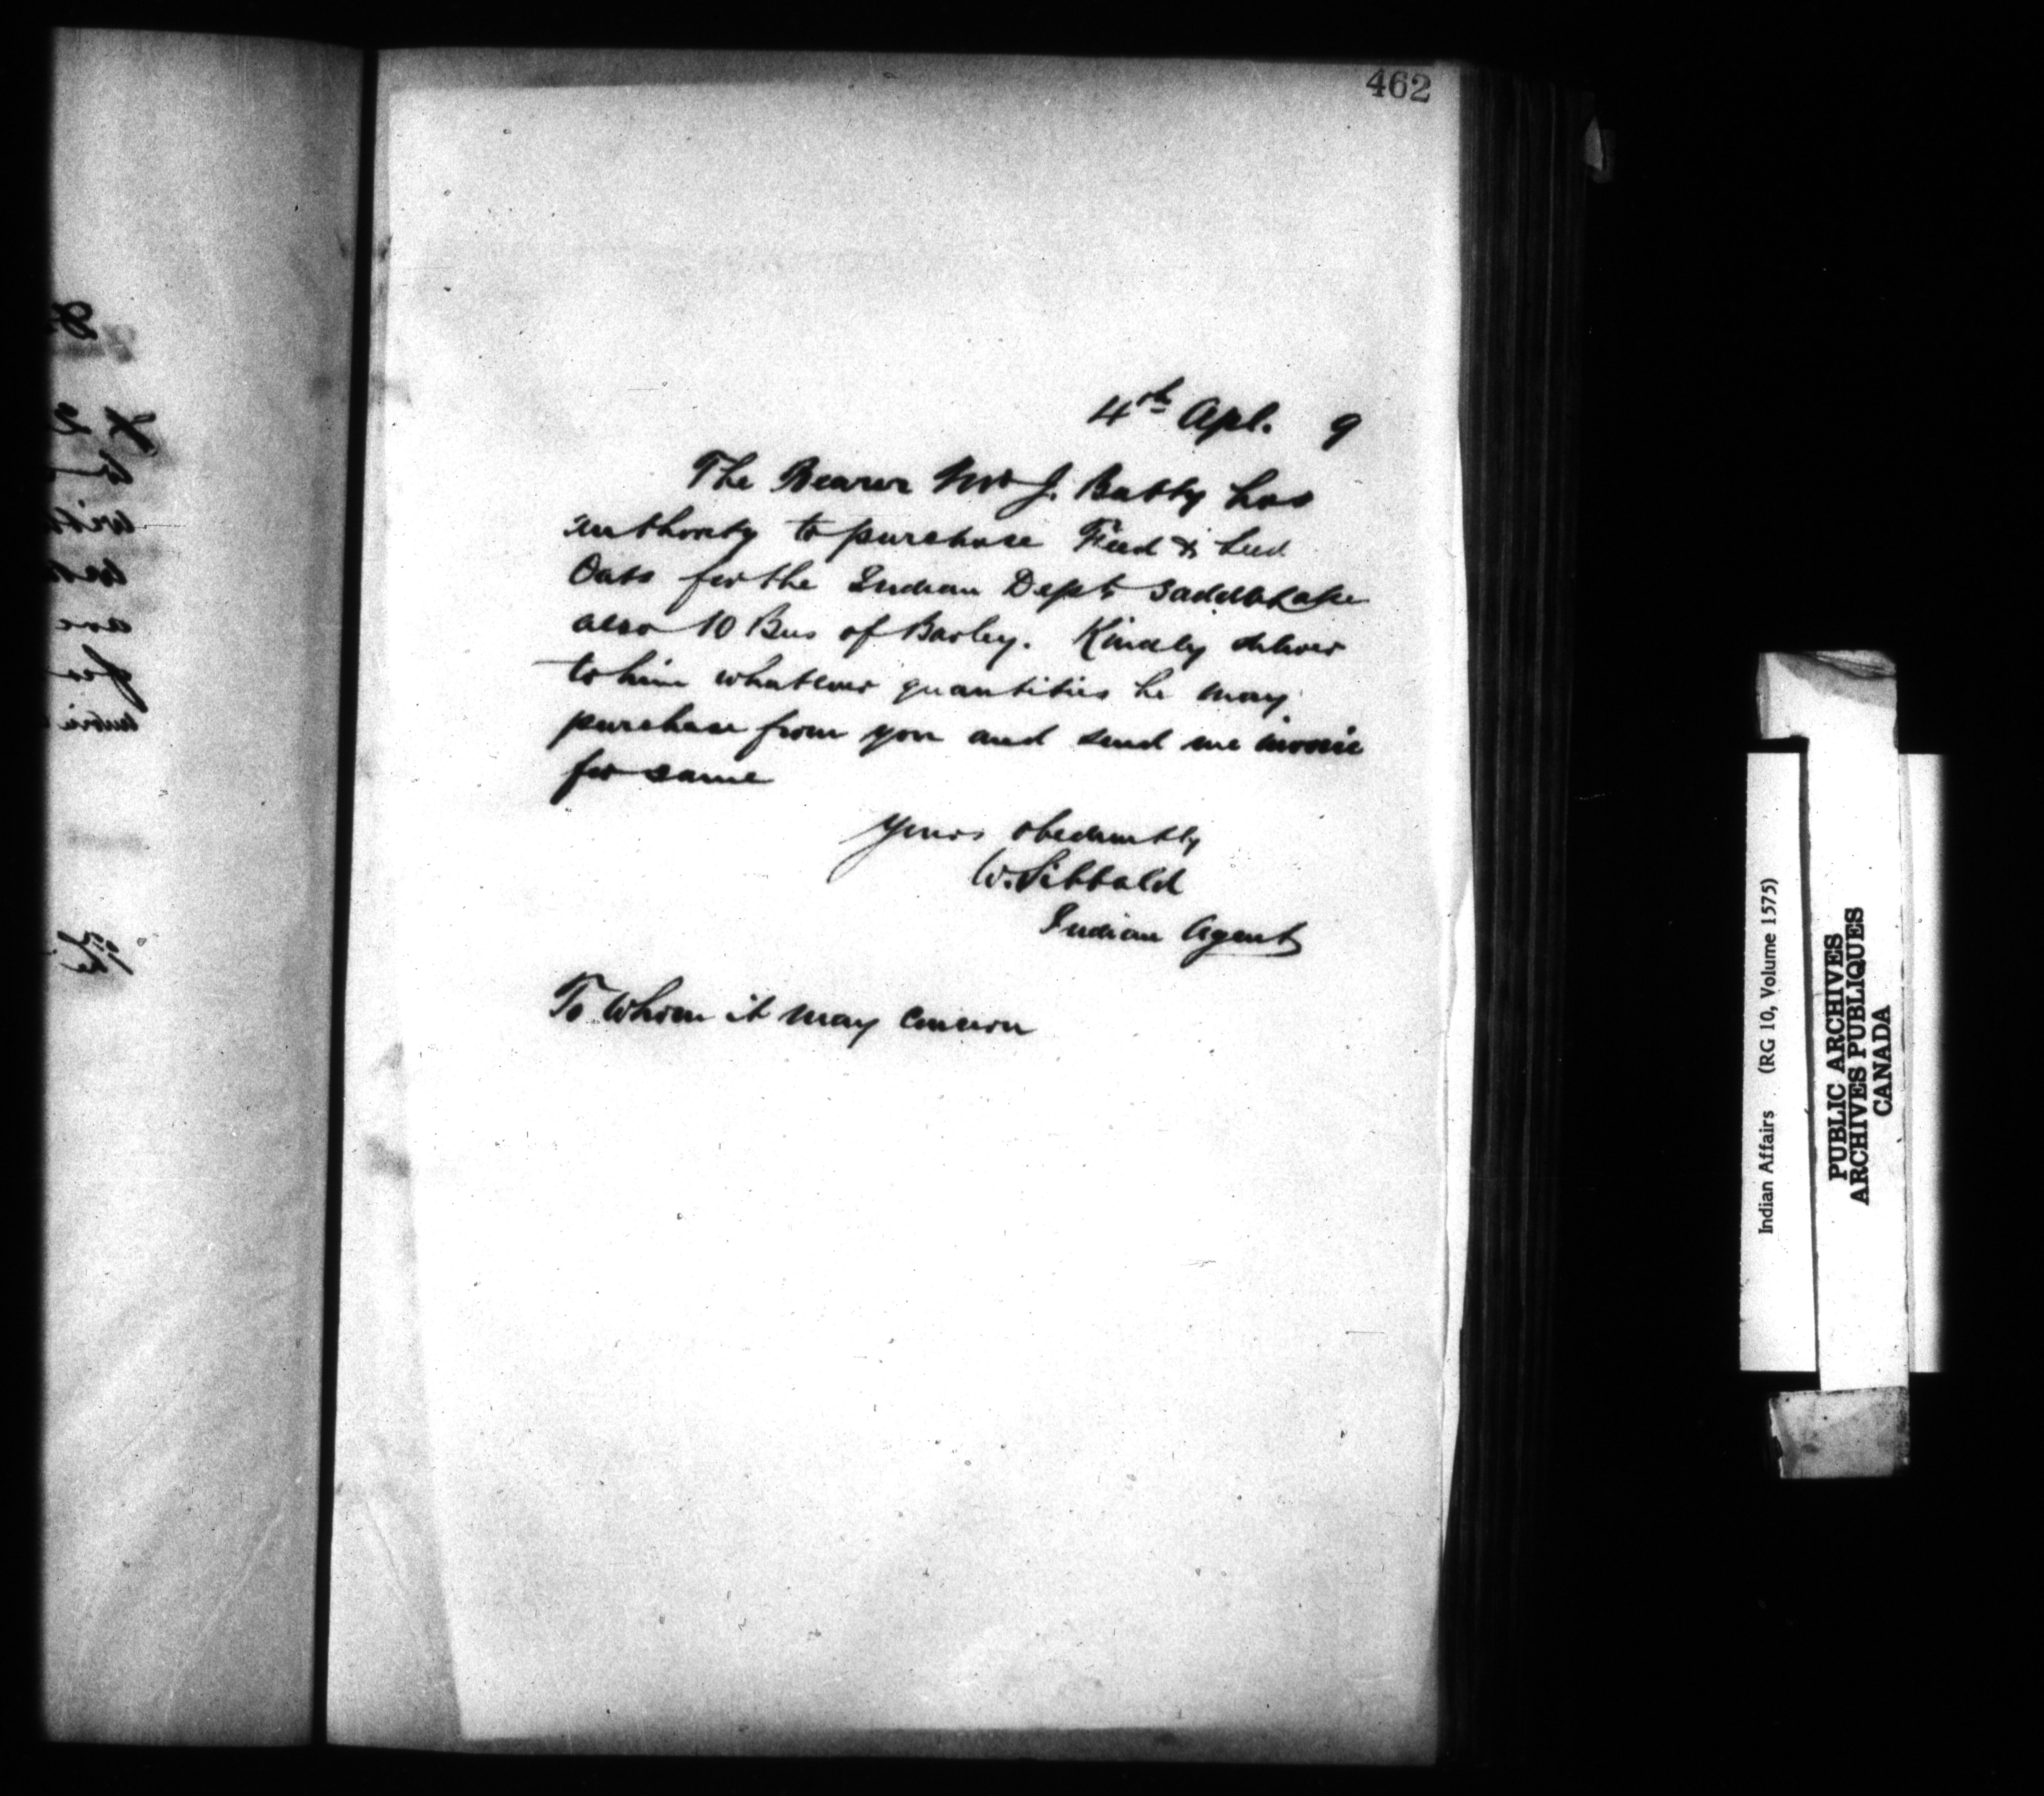 462
4th Apl. 9
The Bearer Mr J. Batty has
authority to purchase Feed & Seed
Oats for the Indian Dept Saddle Lake
also 10 Bus of Barley. Kindly deliver
to him whatever quantities he may
purchase from you and send me invoice
for same
Yours obediently
W. Sibbald
Indian Agent
To Whom it may concern
Indian Affairs (RG 10, Volume 1575)
PUBLIC ARCHIVES
ARCHIVES PUBLIQUES
CANADA